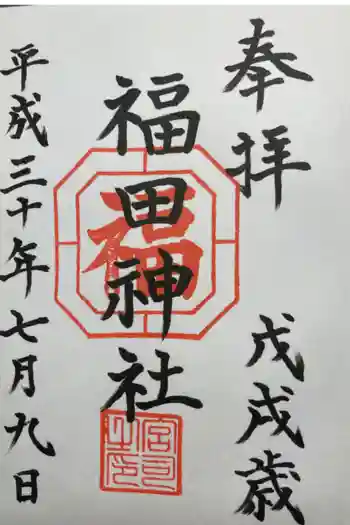 奉拝
戊戌歳
福田神社
福
宮司之印
平成三十年七月九日